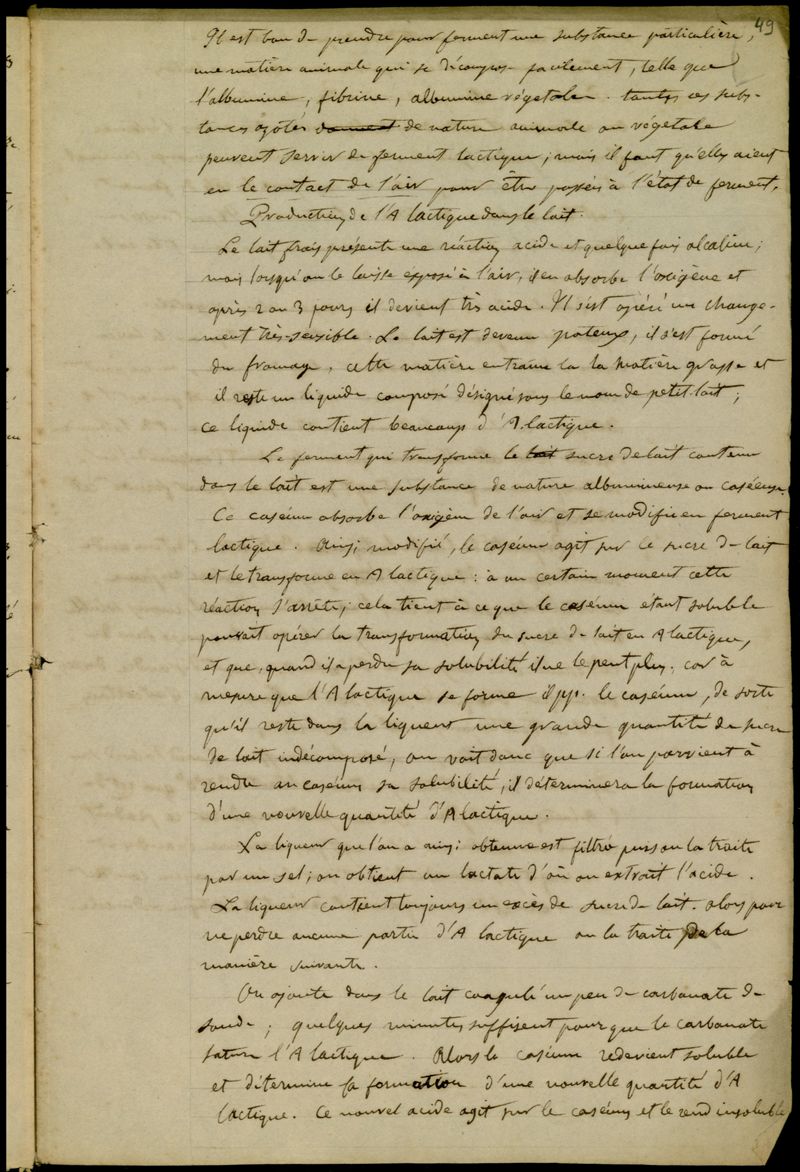 49
Il est bon de prendre pour ferment une substance particulière,
une matière animale qui se décompose facilement, telle que
l'albumine, fibrine, albumine végétale. toutes ces subs-
tances azotés donnent de nature animale ou végétale
peuvent servir de ferment lactique; mais il faut qu'elles aient
eu le contact de l'air pour être passées à l'état de ferment.
Production de l'A lactique dans le lait.
Le lait frais présente une réaction acide et quelque fois alcaline;
mais lorsqu'on le laisse exposé à l'air, il en absorbe l'oxigène et
après 2 ou 3 jours il devient très acide. Il s'est opéré un change-
ment très-sensible. Le lait est devenu pateux, il s'est formé
du fromage, cette matière entraine la la matière grasse et
il reste un liquide composé désigné sous le nom de petit-lait;
ce liquide contient beaucoup d'A lactique.
Le ferment qui transforme le lait sucre de lait contenu
dans le lait est une substance de nature albumineuse ou caséeuse.
Ce caséum absorbe l'oxigène de l'air et se modifie en ferment
lactique. Ainsi modifié, le caséum agit sur le sucre de lait
et le transforme en A lactique: à un certain moment cette
réaction s'arrête; cela tient à ce que le caséum étant soluble
pouvait opérer la transformation du sucre de lait en A lactique,
et que, quand il a perdu sa solubilité il ne le peut plus, car à
mesure que l'A lactique se forme il pp. le caséum, de sorte
qu'il reste dans la liqueur une grande quantité de sucre
de lait indécomposé, on voit donc que si l'on parvient à
rendre au caséum sa solubilité, il déterminera la formation
d'une nouvelle quantité d'A lactique.
La liqueur que l'on a ainsi obtenue est filtré puis on la traite
par un sel; on obtient un lactate d'où on extrait l'acide.
La liqueur contient toujours un excès de sucre de lait. alors pour
ne perdre aucune partie d'A lactique on la traite de la
manière suivante.
On ajoute dans le lait coagulé un peu de carbonate de
soude; quelques minutes suffisent pour que le carbonate
sature l'A lactique. Alors le caséum redevient soluble
et détermine la formation d'une nouvelle quantité d'A
lactique. Ce nouvel acide agit sur le caséum et le rend insoluble